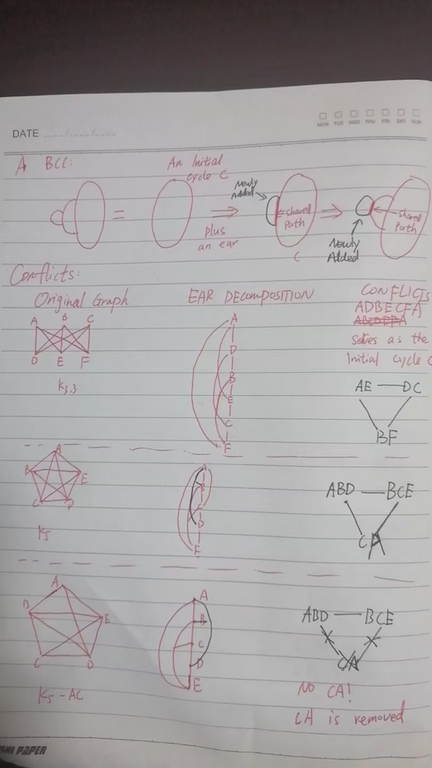 DATE
MON TUE WED THU FRI SAT SUN
A BCC:
An Initial
cycle C
=
plus
an ear
Newly
Added
shared
Path
C
shared
Path
Newly
Added
Conflicts:
Original Graph
EAR DECOMPOSITION
CONFLICTS
A B C
D E F
K3,3
A
D
B
E
C
F
ADBECFA
as the
Initial cycle C
AE — DC
BF
A
B E
C D
K5
A
E
ABD — BCE
CA
A
B E
C D
K5 - AC
A
B
C
D
E
ABD — BCE
CA
NO CA!
CA is removed
PAPER